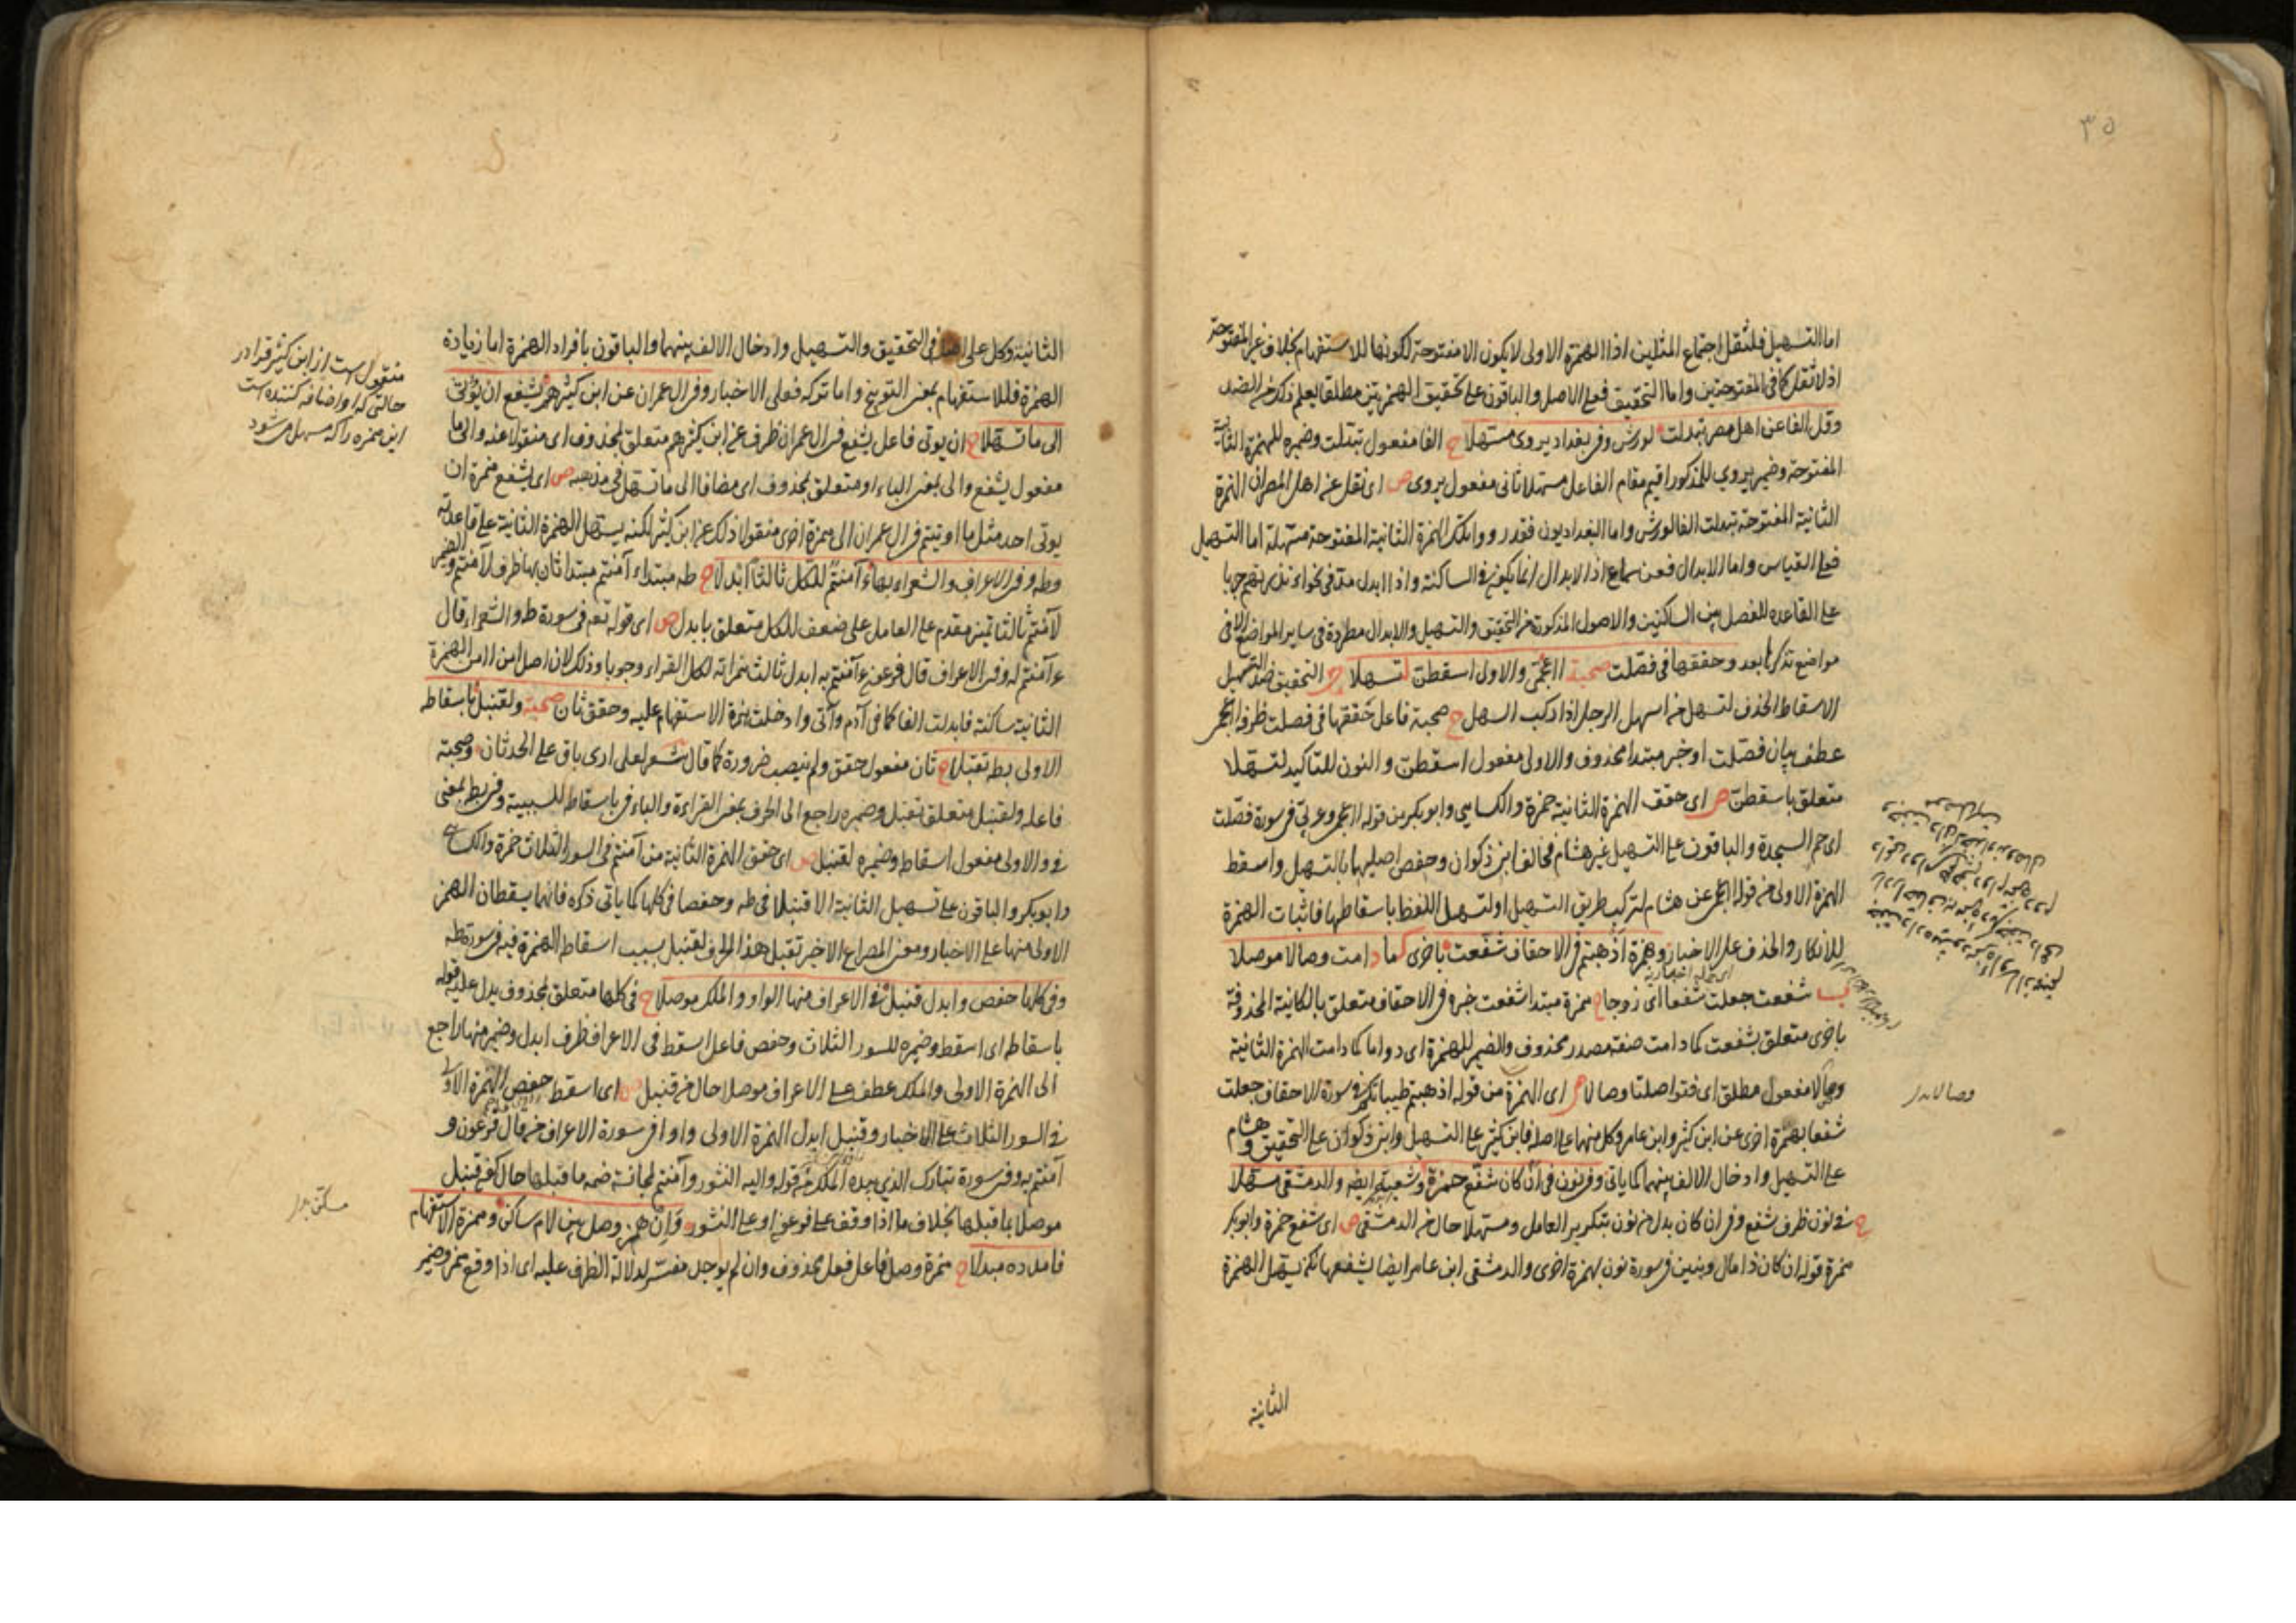 ٣٥
اما التسهيل فلثقل اجتماع المثلين اذ الهمزة الاولى لا يكون الا مفتوحة لكونها للاستفهام بخلاف غير المفتوحة
اذ لا ثقل كما فى المفتوحتين واما التحقيق فعلى الاصل والباقون على تحقيق الهمزتين مطلقا يعلم ذلك من الضد
وقل الفا عن اهل مصر تبدلت لورش وفى بغداد يروى مسهلا ح الفا مفعول تبدلت وضميره للهمزة الثانية
المفتوحة وضمير يروى للمذكور اقيم مقام الفاعل مسهلا ثانى مفعول يروى ص اى نقل عن اهل المصر ان الهمزة
الثانية المفتوحة تبدلت الفا لورش واما البغداديون فقد رووا تلك الهمزة الثانية المفتوحة مسهلة اما التسهيل
فعلى القياس واما الابدال فعن سماع اذ الابدال انما يكون فى الساكنة واذا ابدل مد فى نحو ءانذرتهم جريا
على القاعدة للفصل بين الساكنين والاصول المذكورة من التحقيق والتسهيل والابدال مطردة فى ساير المواضع الا فى
مواضع تذكرها بعد وحققها فى فصلت صحبة ءاعجمى والاولى اسقطن لتسهلا ب التحقيق ضد التسهيل
الاسقاط الحذف لتسهل من اسهل الرجل اذا ركب السهل ح صحبة فاعل حققها فى فصلت ظرف ءاعجمى
عطف بيان فصلت او خبر مبتدا محذوف والاولى مفعول اسقطن والنون للتاكيد لتسهلا
متعلق باسقطن ص اى حقق الهمزة الثانية حمزة والكسايى وابو بكر من قوله ءاعجمى وعربى فى سورة فصلت
اى حم السجدة والباقون على التسهيل غير هشام فخالف ابن ذكوان وحفص اصليهما بالتسهيل واسقط
الهمزة الاولى من قوله اعجمى عن هشام لتركب طريق التسهيل او لتسهل اللفظ باسقاطها فاثبات الهمزة
للانكار والحذف على الاخبار وهمزة اذهبتم فى الاحقاف شفعت باخرى كما دامت وصالا موصلا
ب شفعت جعلت شفعا اى زوجا ح همزة مبتدا شفعت خبره فى الاحقاف متعلق بالكائنة المحذوفة
باخرى متعلق بشفعت كما دامت صفة مصدر محذوف والضمير للهمزة اى دواما كما دامت الهمزة الثانية
وصالا مفعول مطلق اى فتواصلتا وصالا ص اى الهمزة من قوله اذهبتم طيباتكم فى سورة الاحقاف جعلت
شفعا بهمزة اخرى عن ابن كثير وابن عامر وكل منهما على اصله فابن كثير على التسهيل وابن ذكوان على التحقيق وهشام
على التسهيل وادخال الالف بينهما كما ياتى وفى نون فى ان كان شفع حمزة وشعبة ايضا والدمشقى مسهلا
ح فى نون ظرف شفع وفى ان كان بدل من نون بتكرير العامل ومسهلا حال من الدمشقى ص اى شفع حمزة وابو بكر
همزة قوله ان كان ذا مال وبنين فى سورة نون بهمزة اخرى والدمشقى ابن عامر ايضا يشفعها لكن يسهل الهمزة
وصالا بدار
الثانية
الثانية وكل على اصله فى التحقيق والتسهيل وادخال الالف بينهما والباقون بافراد الهمزة اما زيادة
الهمزة فللاستفهام بمعنى التوبيخ واما تركه فعلى الاخبار وفى ال عمران عن ابن كثيرهم يشفع ان يؤتى
الى ما تسهلا ح ان يوتى فاعل يشفع فى ال عمران ظرف عن ابن كثيرهم متعلق بمحذوف اى منقولا عنه والى ما
مفعول يشفع والى بمعنى الباء او متعلق بمحذوف اى مضافا الى ما تسهل فى مذهبه ص اى يشفع همزة ان
يوتى احد مثل ما اوتيتم فى ال عمران الى همزة اخرى منقولا ذلك عن ابن كثير لكنه يسهل الهمزة الثانية على قاعدته
وطه وفى الاعراف والشعراء بها ءآمنتم للكل ثالثا ابدلا ح طه مبتداء آمنتم مبتدا ثان بها ظرف لآمنتم والضمير
لآمنتم ثالثا تمييز مقدم على العامل على ضعف للكل متعلق بابدل ص اى قوله تعم فى سورة طه والشعراء قال
ءآمنتم له وفى الاعراف قال فرعون ءآمنتم به ابدل ثالث همزاته لكل القراء وجوبا وذلك لان اصل امن اامن الهمزة
الثانية ساكنة فابدلت الفا كما فى آدم وآتى وادخلت همزة الاستفهام عليه وحقق ثان صحبة ولقنبل باسقاط
الاولى بطه تقبلا ح ثان مفعول حقق ولم ينصب ضرورة كما قال شعر لعلى ارى باق على الحدثان وصحبة
فاعله ولقنبل متعلق تقبل وضميره راجع الى الحرف بمعنى القراءة والباء فى باسقاط للسببية وفى بطه بمعنى
فى والاولى مفعول اسقاط وضميره لقنبل ص اى حقق الهمزة الثانية من آمنتم فى السور الثلاث حمزة والكسايى
وابو بكر والباقون على تسهيل الثانية الا قنبلا فى طه وحفصا فى كلها كما ياتى ذكره فانهما يسقطان الهمز
الاولى منها على الاخبار ومعنى المصراع الاخير تقبل هذا الحرف لقنبل بسبب اسقاط الهمزة فيه فى سورة طه
وفى كلها حفص وابدل قنبل فى الاعراف منها الواو والملك موصلا ح فى كلها متعلق بمحذوف يدل عليه قوله
باسقاط اى اسقط وضميره للسور الثلاث وحفص فاعل اسقط فى الاعراف ظرف ابدل وضمير منها راجع
الى الهمزة الاولى والملك عطف على الاعراف موصلا حال من قنبل ص اى اسقط حفص الهمزة الاولى
فى السور الثلاث على الاخبار وقنبل ابدل الهمزة الاولى واوا فى سورة الاعراف من قال فرعون و
آمنتم به وفى سورة تبارك الذى بيده الملك من قوله واليه النشور وآمنتم لمجانسة ضمة ما قبلها حال كون قنبل
موصلا بما قبلها بخلاف ما اذا وقف على فرعون او على النشور وان همز وصل بين لام ساكن وهمزة الاستفهام
فامدده مبدلا ح همزة وصل فاعل فعل محذوف وان لم يوجد مفسر لدلالة الظرف عليه اى اذا وقع همز وضمير
منقول است از ابن كثير قرا در
حالتى كه او اضافه كننده است
اين همزه را كه مسهل مى شود